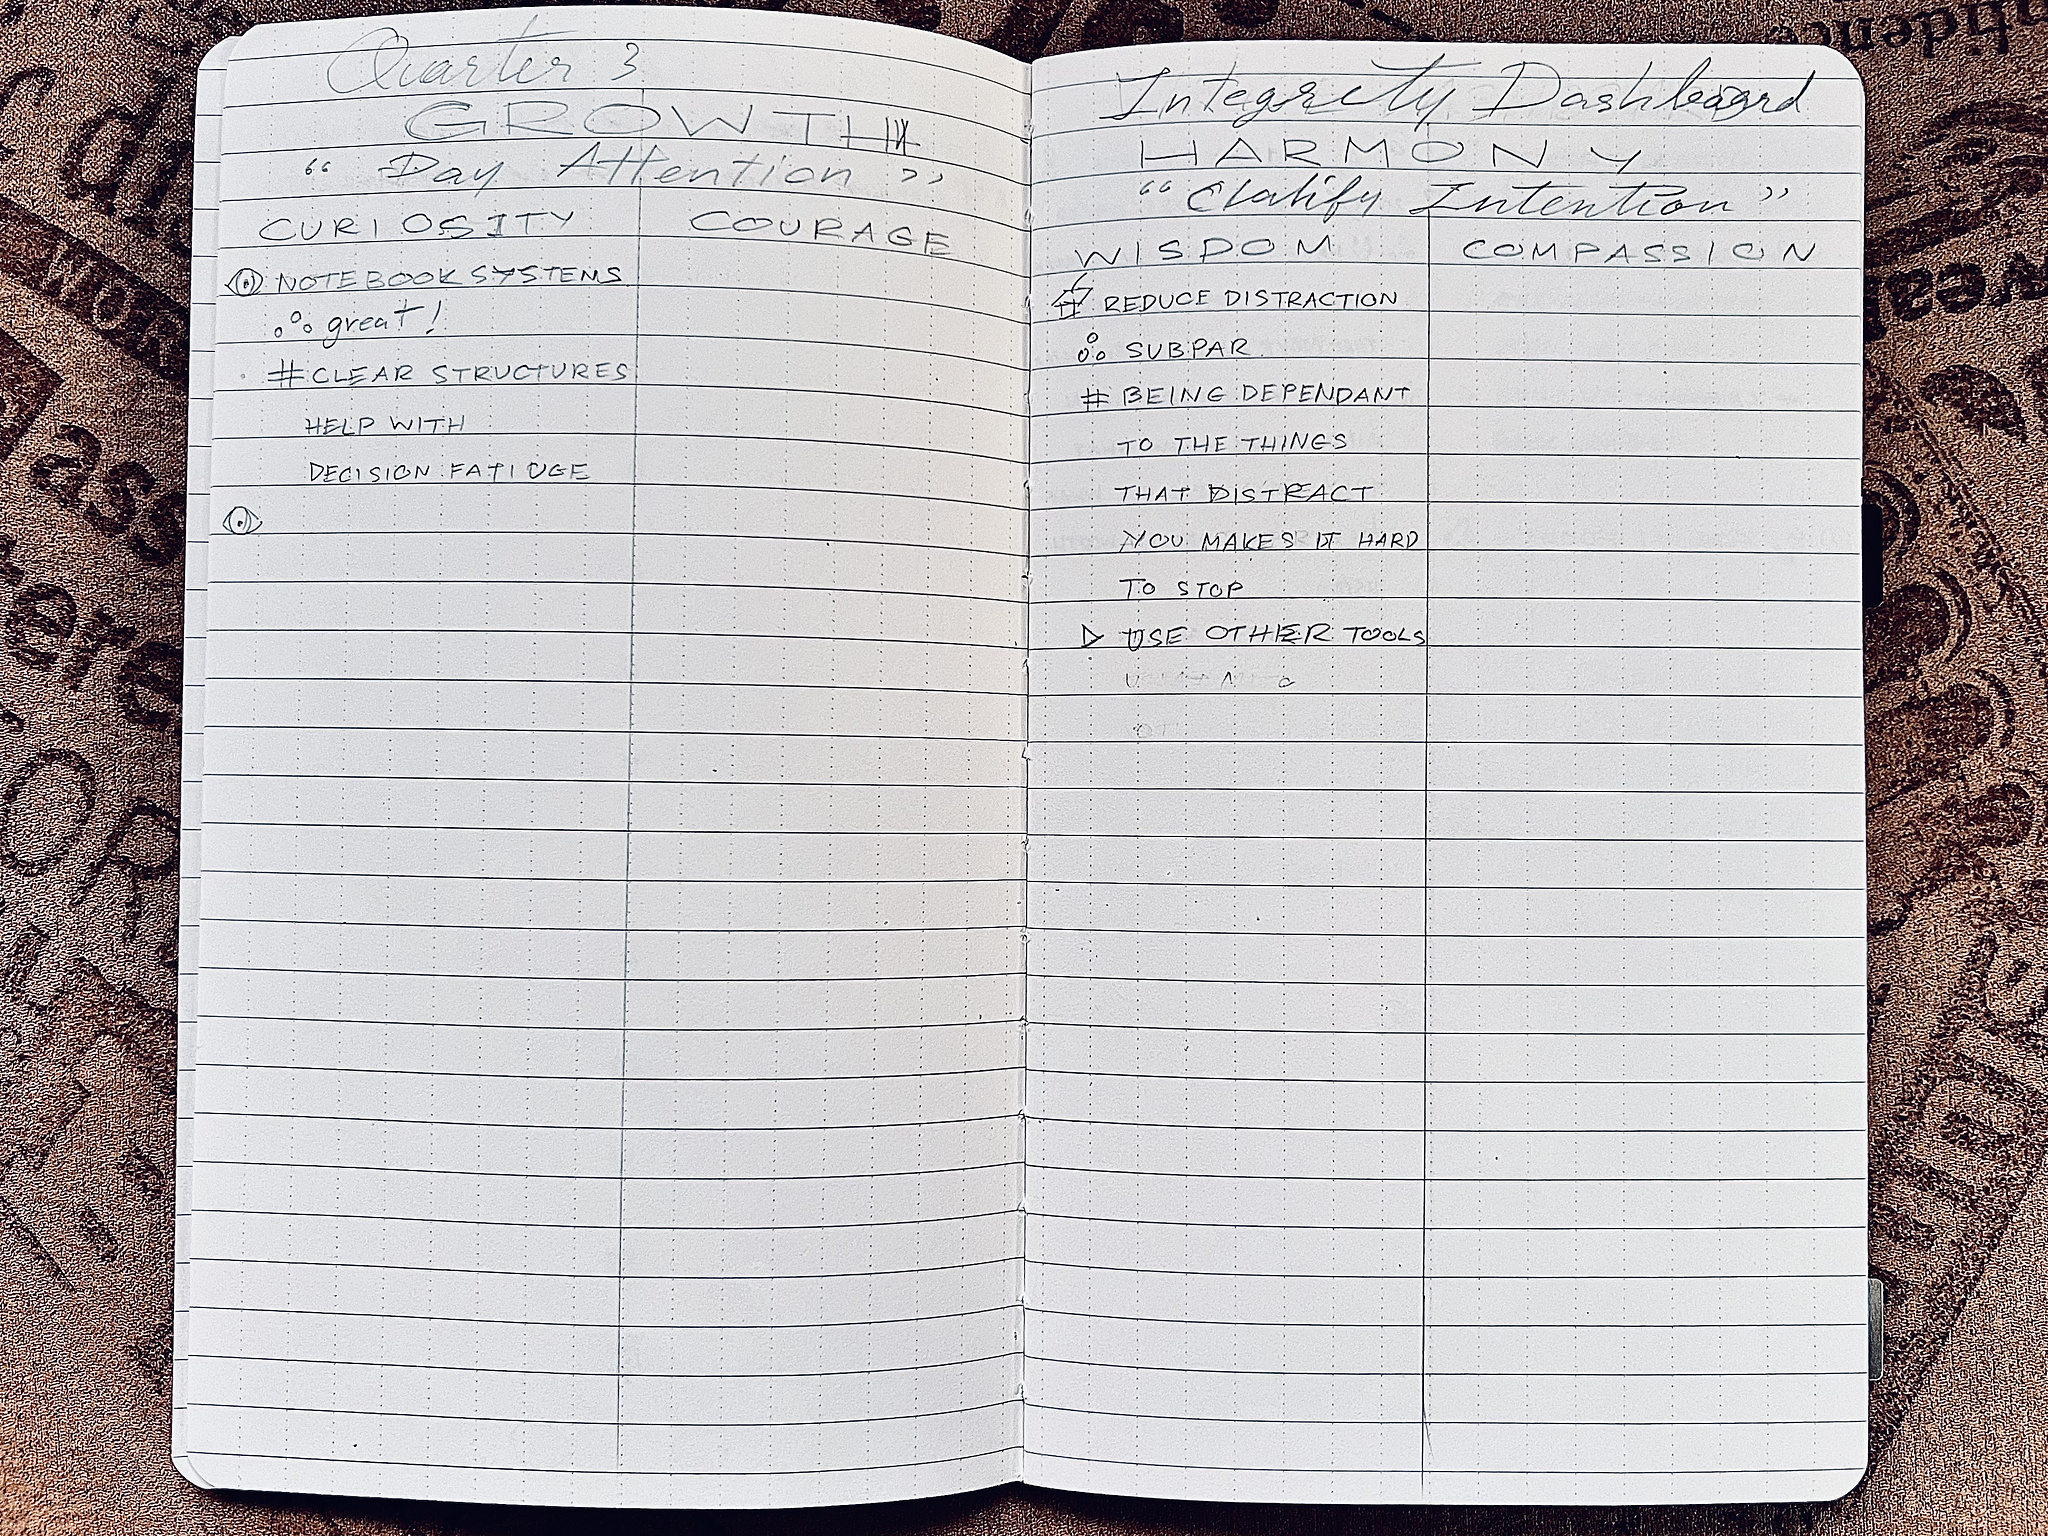 Quarter 3
GROWTH
"Day Attention"
CURIOSITY
NOTEBOOK SYSTEMS
great!
# CLEAR STRUCTURES
HELP WITH
DECISION FATIUGE
COURAGE
Integrity Dashboard
HARMONY
"Clarify Intention"
WISDOM
REDUCE DISTRACTION
SUBPAR
# BEING DEPENDANT
TO THE THINGS
THAT DISTRACT
YOU MAKES IT HARD
TO STOP
USE OTHER TOOLS
COMPASSION